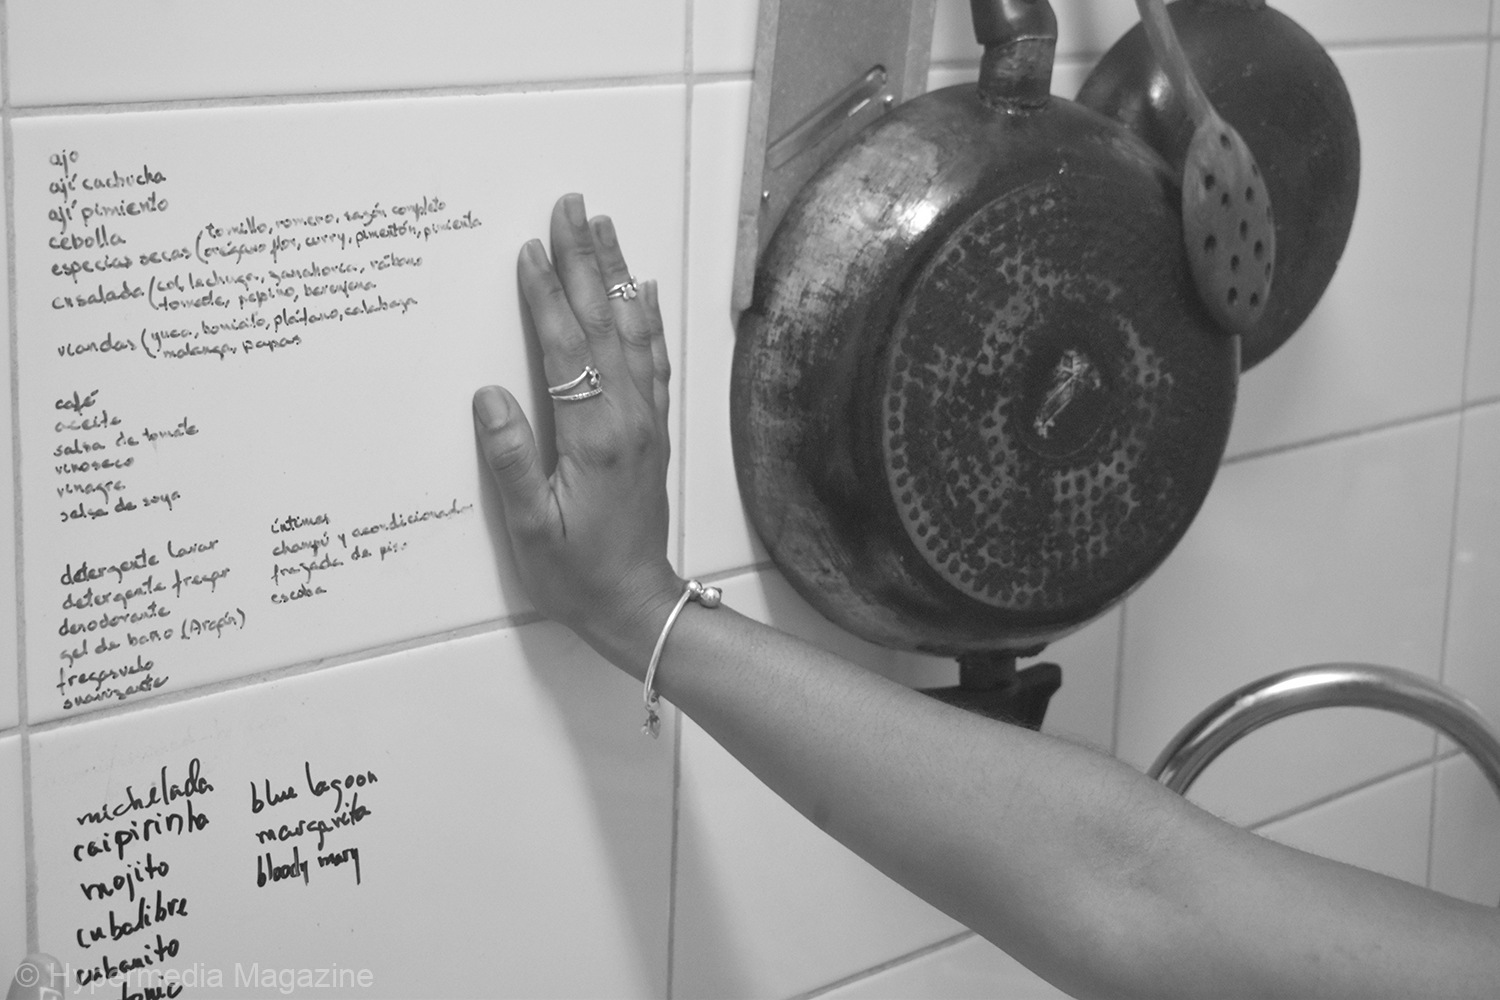 ajo
ají cachucha
ají pimiento
cebolla
especias secas (tomillo, romero, sazón completo
orégano flor, curry, pimentón, pimienta
ensalada (col, lechuga, zanahoria, rábano
tomate, pepino, berenjena
viandas (yuca, boniato, plátano, calabaza
malanga, papas
café
aceite
salsa de tomate
vinoseco
vinagre
salsa de soya
detergente lavar
detergente fregar
desodorante
gel de baño (Aragón)
fregasuelo
suavizante
íntimas
champú y acondicionador
frazada de piso
escoba
michelada
caipirinha
mojito
cubalibre
cubanito
tonic
blue lagoon
margarita
bloody mary
© Hypermedia Magazine